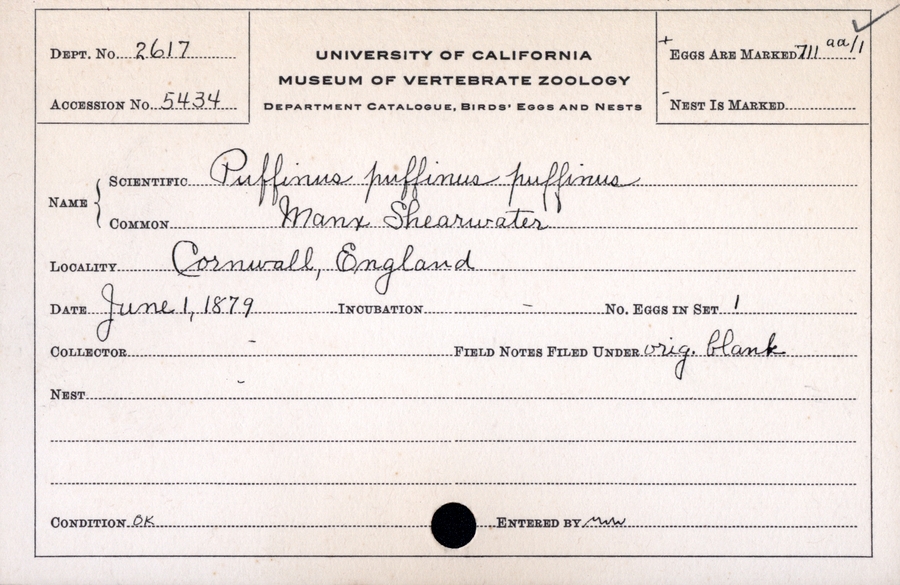 DEPT. No. 2617
ACCESSION No. 5434
UNIVERSITY OF CALIFORNIA
MUSEUM OF VERTEBRATE ZOOLOGY
DEPARTMENT CATALOGUE, BIRDS' EGGS AND NESTS
EGGS ARE MARKED 711 aa/1
NEST IS MARKED
NAME
SCIENTIFIC Puffinus puffinus puffinus
COMMON Manx Shearwater
LOCALITY Cornwall, England
DATE June 1, 1879 INCUBATION - NO. EGGS IN SET 1
COLLECTOR - FIELD NOTES FILED UNDER orig. blank
NEST -
CONDITION OK ENTERED BY